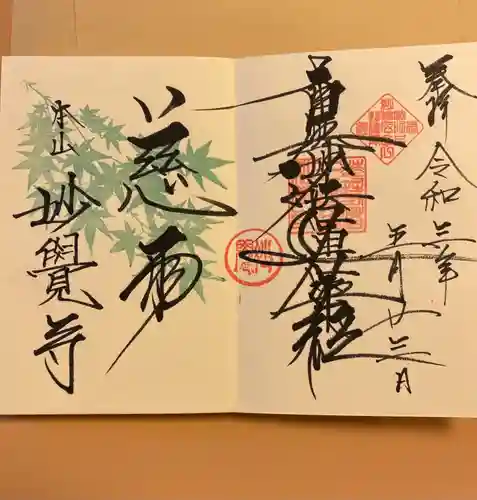 奉拝 令和三年
五月廿三日
南無妙法蓮華経
慈雨
本山
妙覺寺